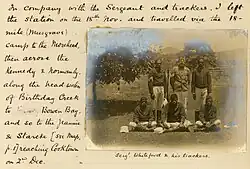 In company with the Sergeant and trackers, I left
the station on the 16th Nov. and travelled via the 18-
mile (Musgrave)
camp to the Morehead,
then across the
Kennedy & Normanby,
along the head waters
of Birthday Creek
to Bowen Bay,
and so to the Jeannie
& Starcke [on map,
reaching Cooktown
on 2nd Dec.
Sergt. Whiteford & his trackers.